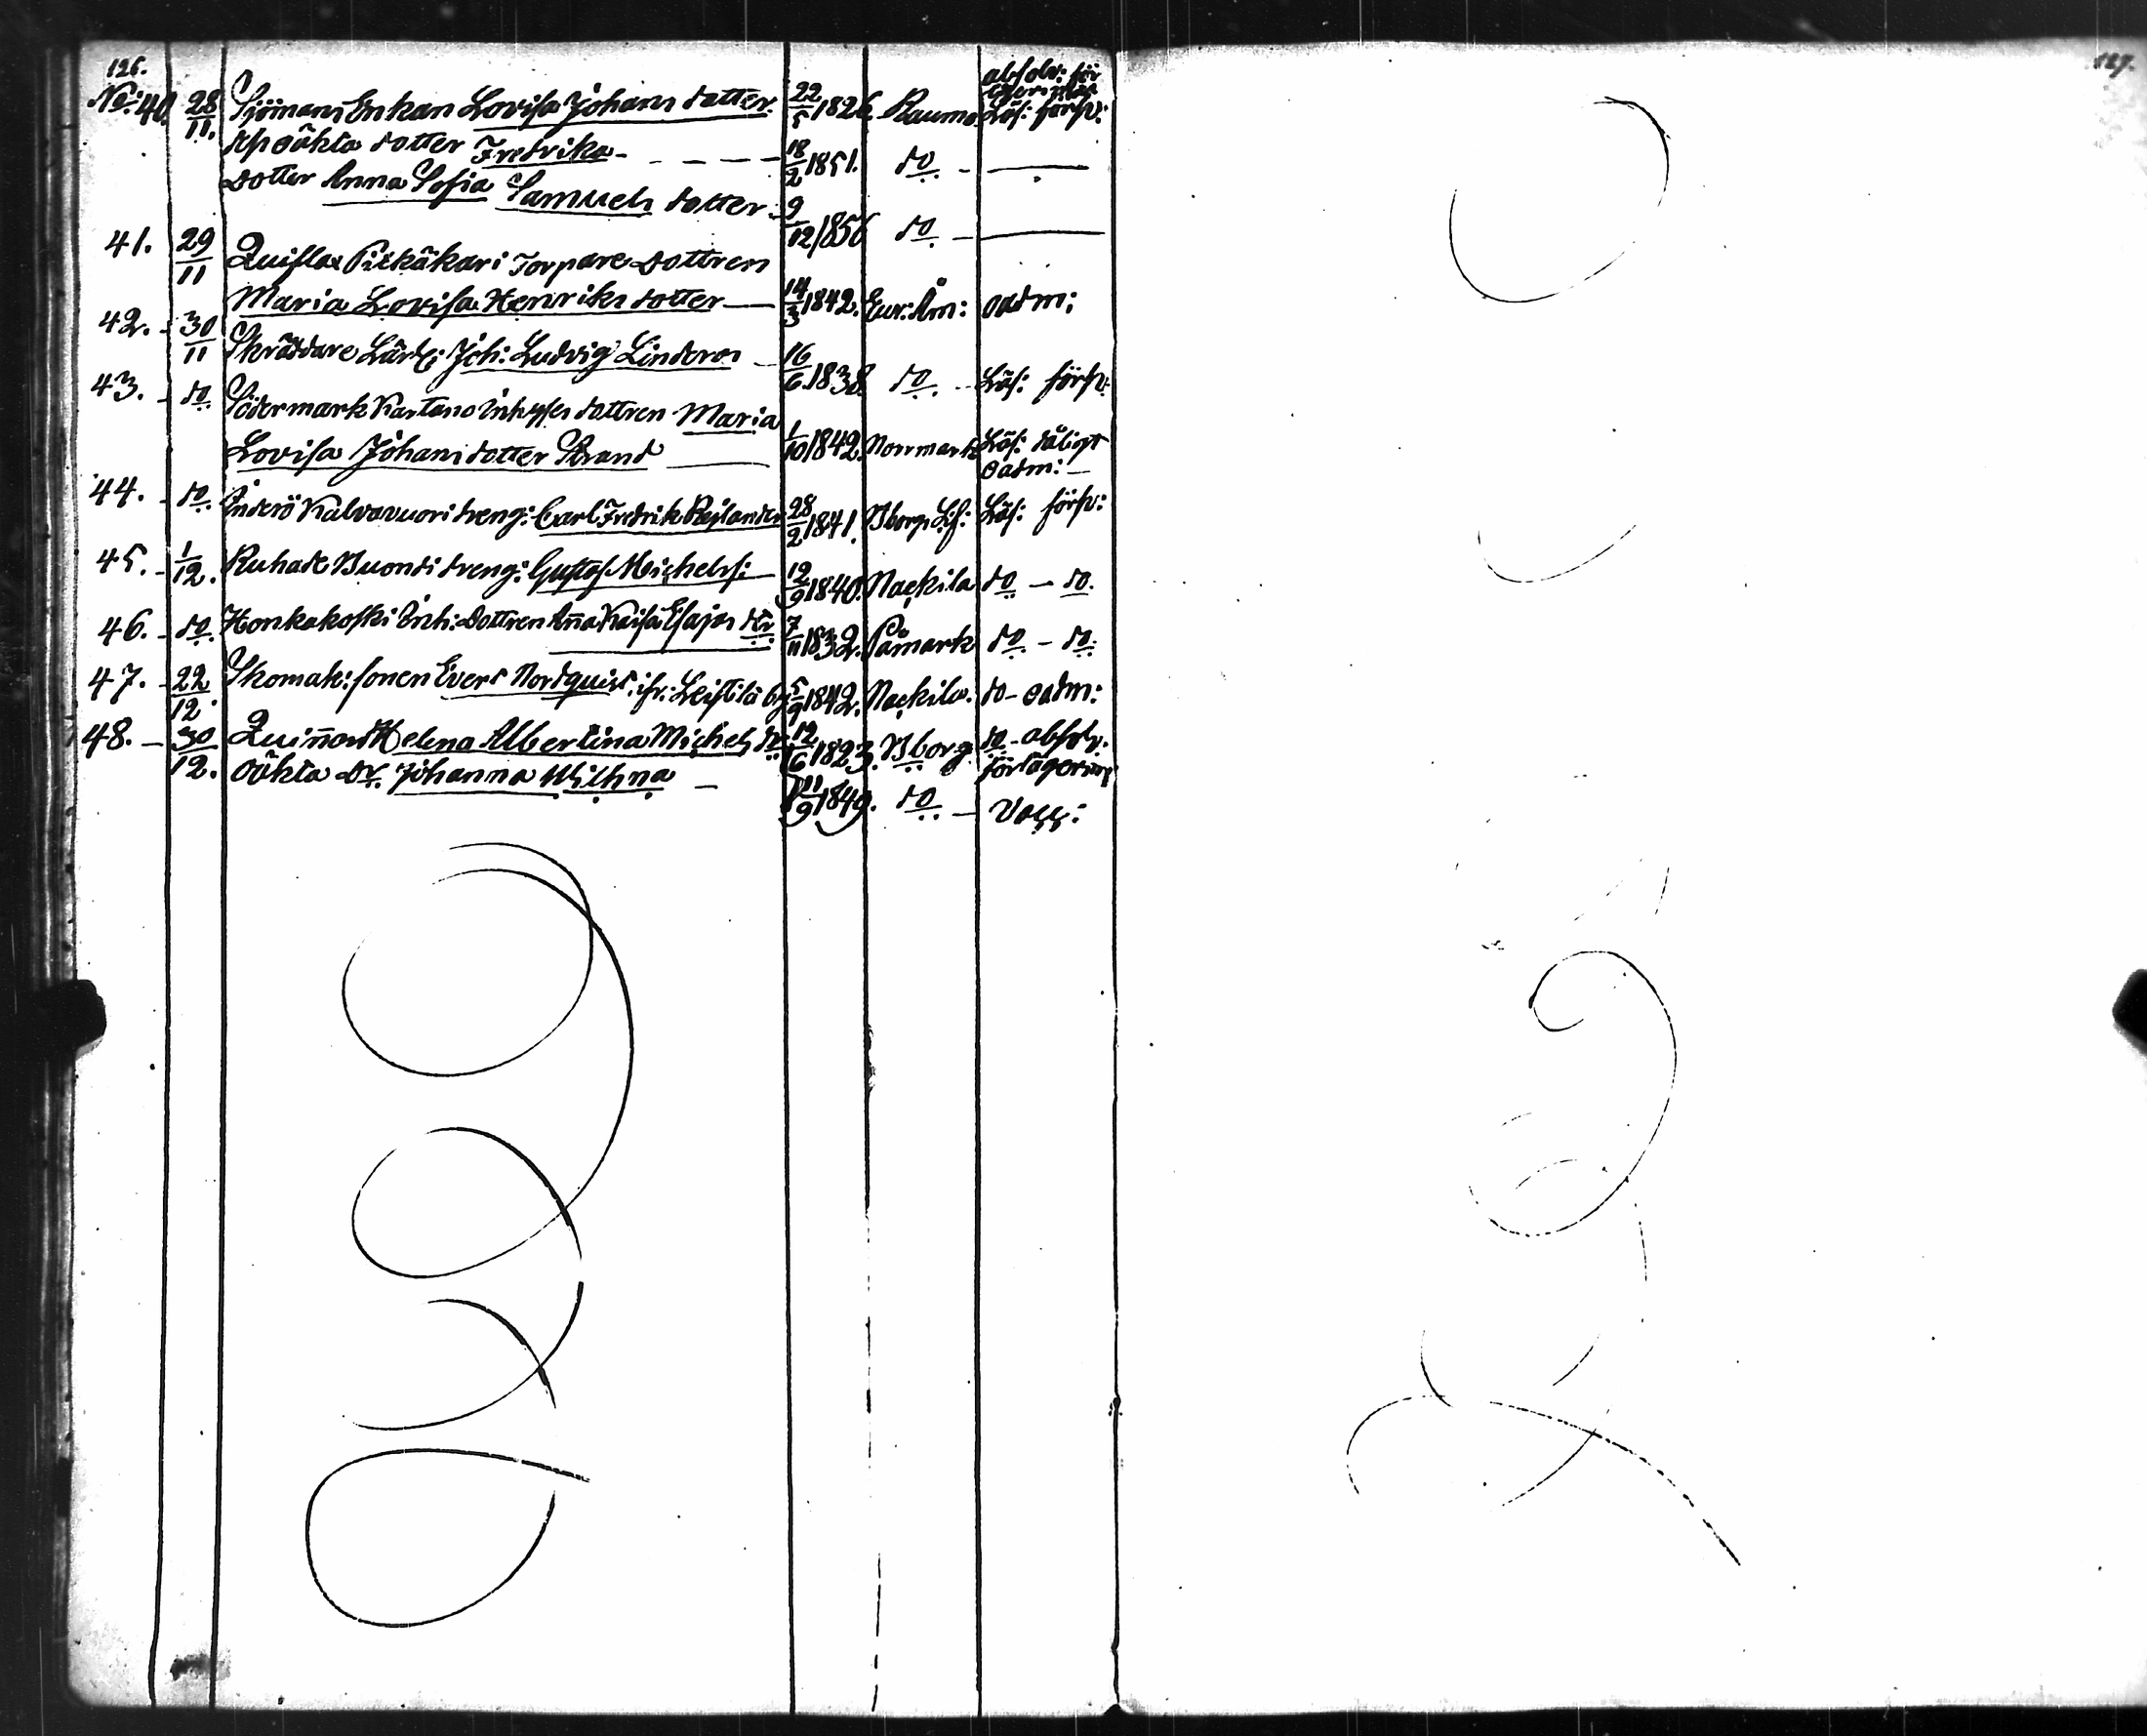 126.
127.
No: 40. 28/11. Sjömans Enkan Lovisa Johans dotter. 22/5 1826. Raumo Läs: försv: absolv: för
oäkta dotter Fredrika - - - - 18/2 1851. do -
dotter Anna Sofia Samuels dotter - 9/12 1856 do -
41. 29/11 Torpare dottren
Maria Lovisa Henriks dotter 14/3 1842. Eur: Åm: oadm:
42. 30/11 Skräddare Lärl: Joh: Ludvig Linderos 16/6 1838. do - Läs: försv:
43. do Södermark Kartano Inhyses dottren Maria
Lovisa Johansdotter Strand 1/10 1842. Norrmark Läs: dåligt
oadm:
44. do. Inderö Kalvavuori dreng: Carl Fredrik Rejlander 28/2 1841. Läs: försv:
45. 1/12. Ruhade Vuondi dreng: Gustaf Michelss: 19/9 1840. Nackila do - do.
46. do. Honkakoski Inh: Dottren Anna Kaisa Esajas dr 7/11 1832. Påmark do - do.
47. 22/12. Skomak: sonen Evert Nordquist, ifr: Leistilä by 5/9 1842. Nackila. do - oadm:
48. 30/12. Quinnan Helena Albertina Michels dr 12/6 1823. Bborg. do - absolv:
oäkta Dr. Johanna Wilhna - 11/9 1849. do - Vacc: för lägersm